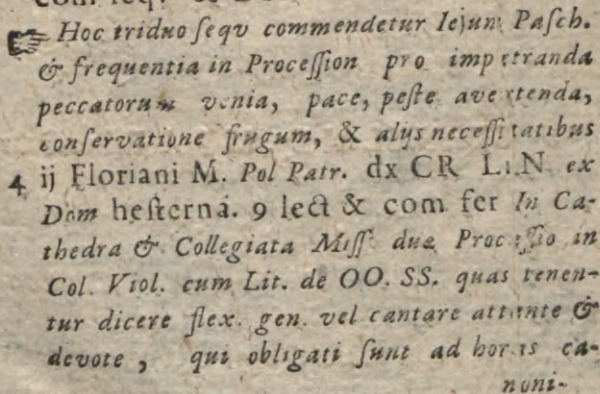 ☞ Hoc triduo ſeqv commendetur Iejun Paſch.
& frequentia in Proceſſion pro impetranda
peccatorum venia, pace, peſte avertenda,
conſervatione frugum, & alijs neceſſitatibus
4 ij Floriani M. Pol Patr. dx CR LIN ex
Dom heſterná. 9 lect & com fer In Ca-
thedra & Collegiata Miſſ duæ Proceſſio in
Col. Viol. cum Lit. de OO. SS. quas tenen-
tur dicere flex. gen. vel cantare attente &
devote, qui obligati ſunt ad horas ca-
noni-